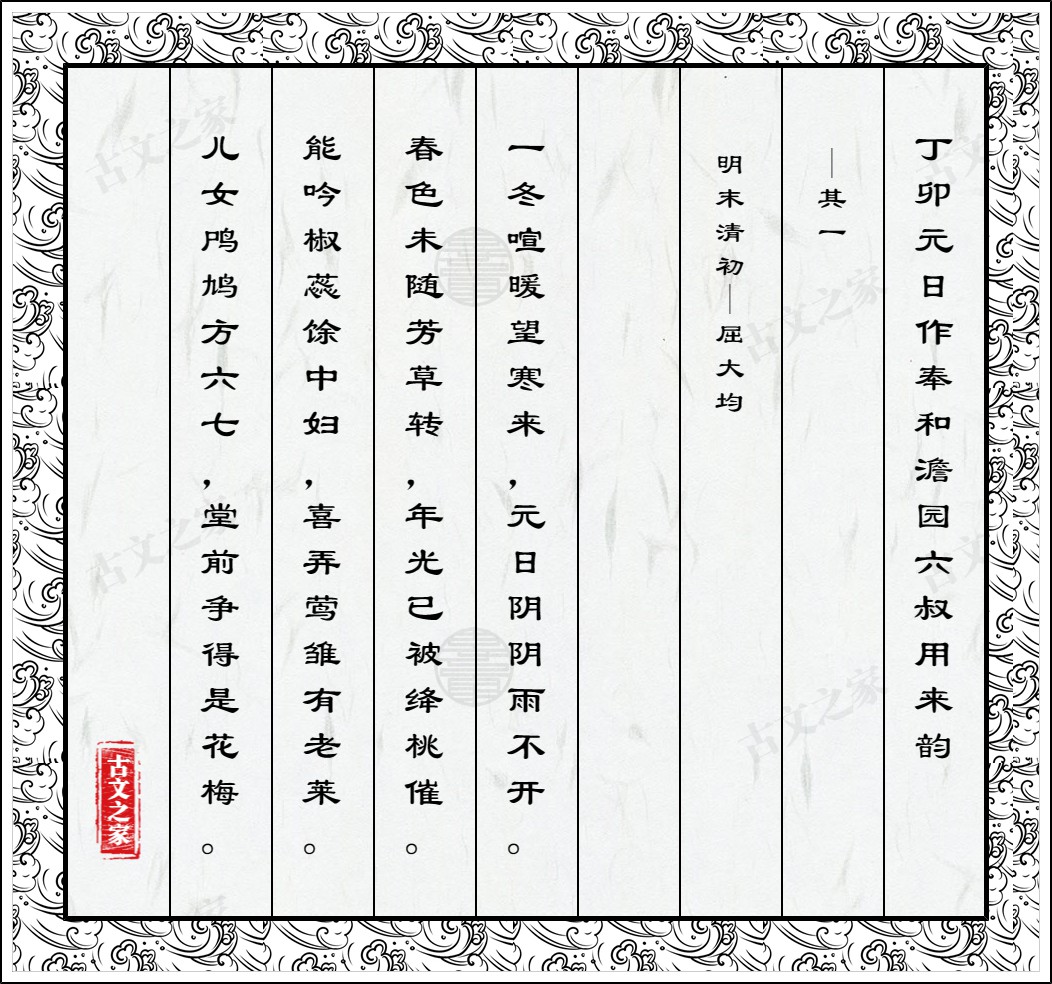 丁卯元日作奉和澹园六叔用来韵
—其一
明末清初—屈大均
一冬喧暖望寒来，元日阴阴雨不开。
春色未随芳草转，年光已被绛桃催。
能吟椒蕊馀中妇，喜弄莺雏有老莱。
儿女鸤鸠方六七，堂前争得是花梅。
古文之家